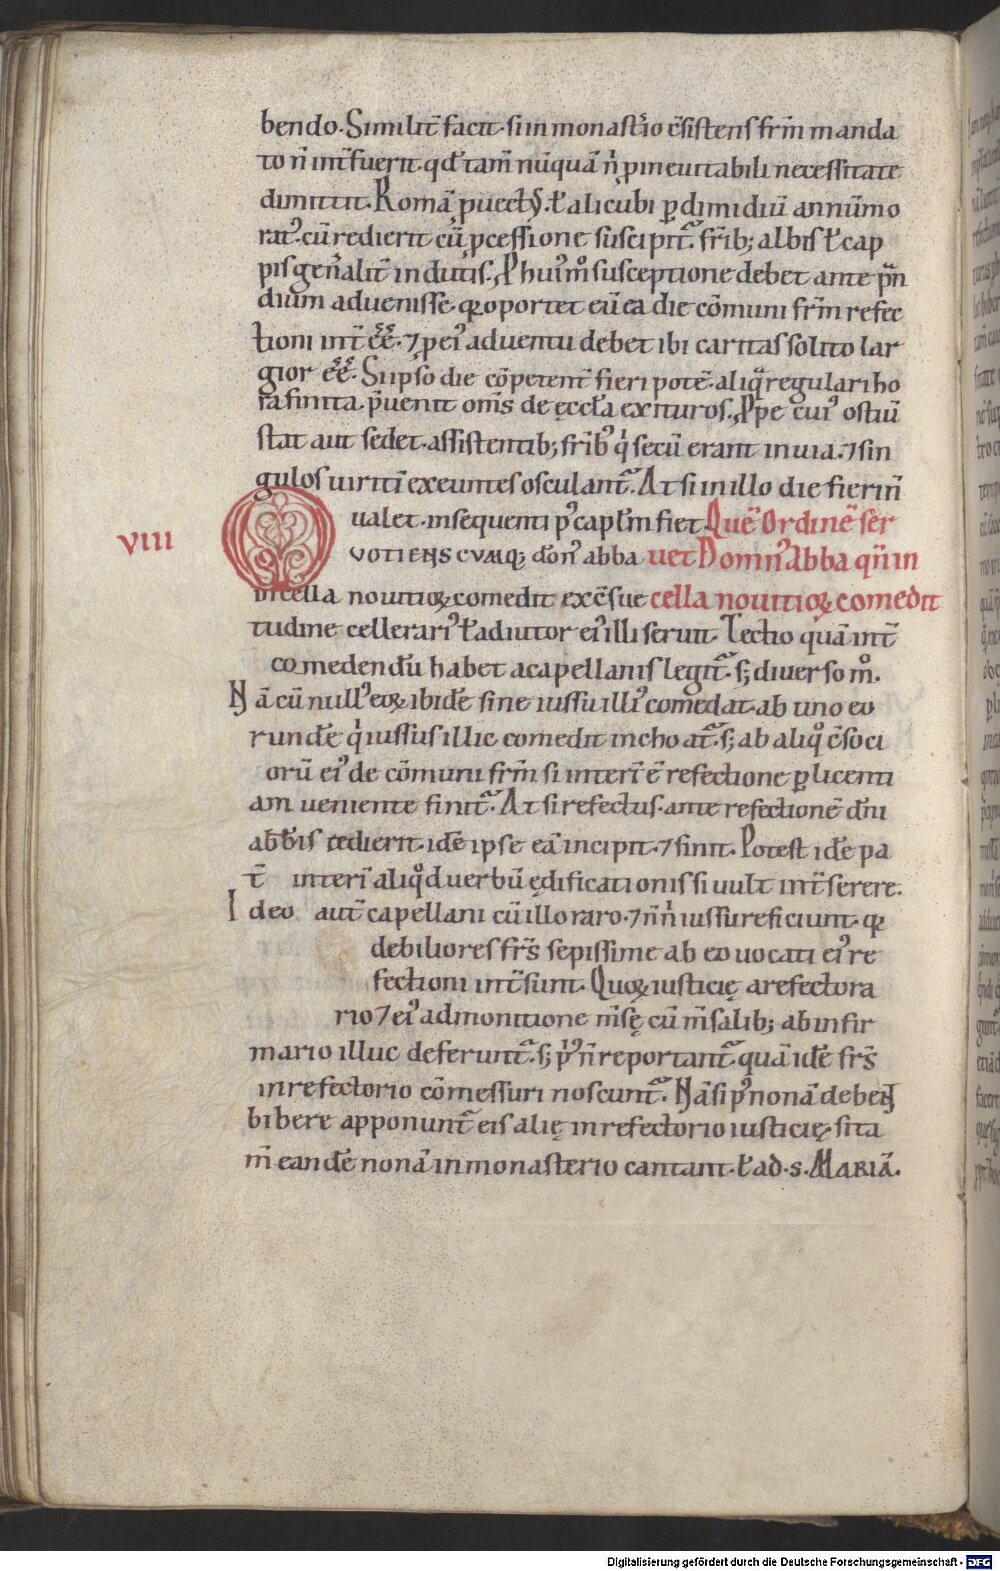 bendo. Similit̄ facit. si in monast̄io c̄sistens fr̄m manda
to n̄ int̄fuerit. qđ tam̄ nūquā n̄ p ineuitabili necessitate
dimittit. Romā puect᷒. ł alicubi p̱ dimidiū annū mo
rat᷒. cū redierit cū pcessione suscipit᷒. fr̄ib; albis ł cap
pis gen̄alit̄ indutis. P hui᷒m̊ susceptione debet ante p̄n
dium aduenisse. qꝛ oportet eū ea die cōmuni fr̄m refec
tioni int̄ ēē. ⁊ p ei᷒ aduentu debet ibi caritas solito lar
gior ēē. Si ipso die cōpetent̄ fieri potē. aliq̄ regulari ho
ra finita. p̄uenit om̄s de ęccła exituros. Ppe cui᷒ ostiū
stat aut sedet. assistentib; fr̄ib᷒ q̇ secū erant in uia. ⁊ sin
gulos uiritī exeuntes osculant᷒. At si in illo die fieri n̄
ualet. insequenti p᷒ capłm fiet. Quē Ordinē ser
VIII QVOTIENSCVMQ; don᷒ abba uet Domn᷒ Abba qn̄ in
in cella nouitioꝝ comedit ex c̄sue cella nouitioꝝ comedit
tudine cellerari᷒ ł adiutor ei᷒ illi seruit. Lectio quā int̄
comedendū habet a capellanis legit᷒. s; diuerso m̊.
Nā cū null᷒ eoꝝ ibidē sine iussu illi᷒ comedat. ab uno eo
rundē q̇ iussus illic comedit inchoat᷒. s; ab aliq̊ c̄soci
orū ei᷒ de cōmuni fr̄m si interī ē refectione p̱ licenti
am ueniente finit᷒. At si refectus. ante refectionē dn̄i
abb̄is redierit. idē ipse eā incipit. ⁊ finit. Potest idē pa
t̄ interī aliq̊d uerbū ędificationis si uult int̄serere.
Ideo aut̄ capellani cū illo raro. ⁊ n̄ n̄ iussu reficiunt. qꝛ
debiliores fr̄s sepissime ab eo uocati ei᷒ re
fectioni int̄sunt. Quoꝝ iusticię a refectora
rio ⁊ ei᷒ admonitione m̄sę cū m̄salib; ab infir
mario illuc deferunt᷒. s; p᷒ n̄ reportant᷒. quā idē fr̄s
in refectorio cōmessuri noscunt᷒. Nā si p᷒ nonā debent
bibere apponunt᷒ eis alię in refectorio iusticię. si ta
m̄ eandē nonā in monasterio cantant. ł ad. s. MARIĀ.
Digitalisierung gefördert durch die Deutsche Forschungsgemeinschaft - DFG